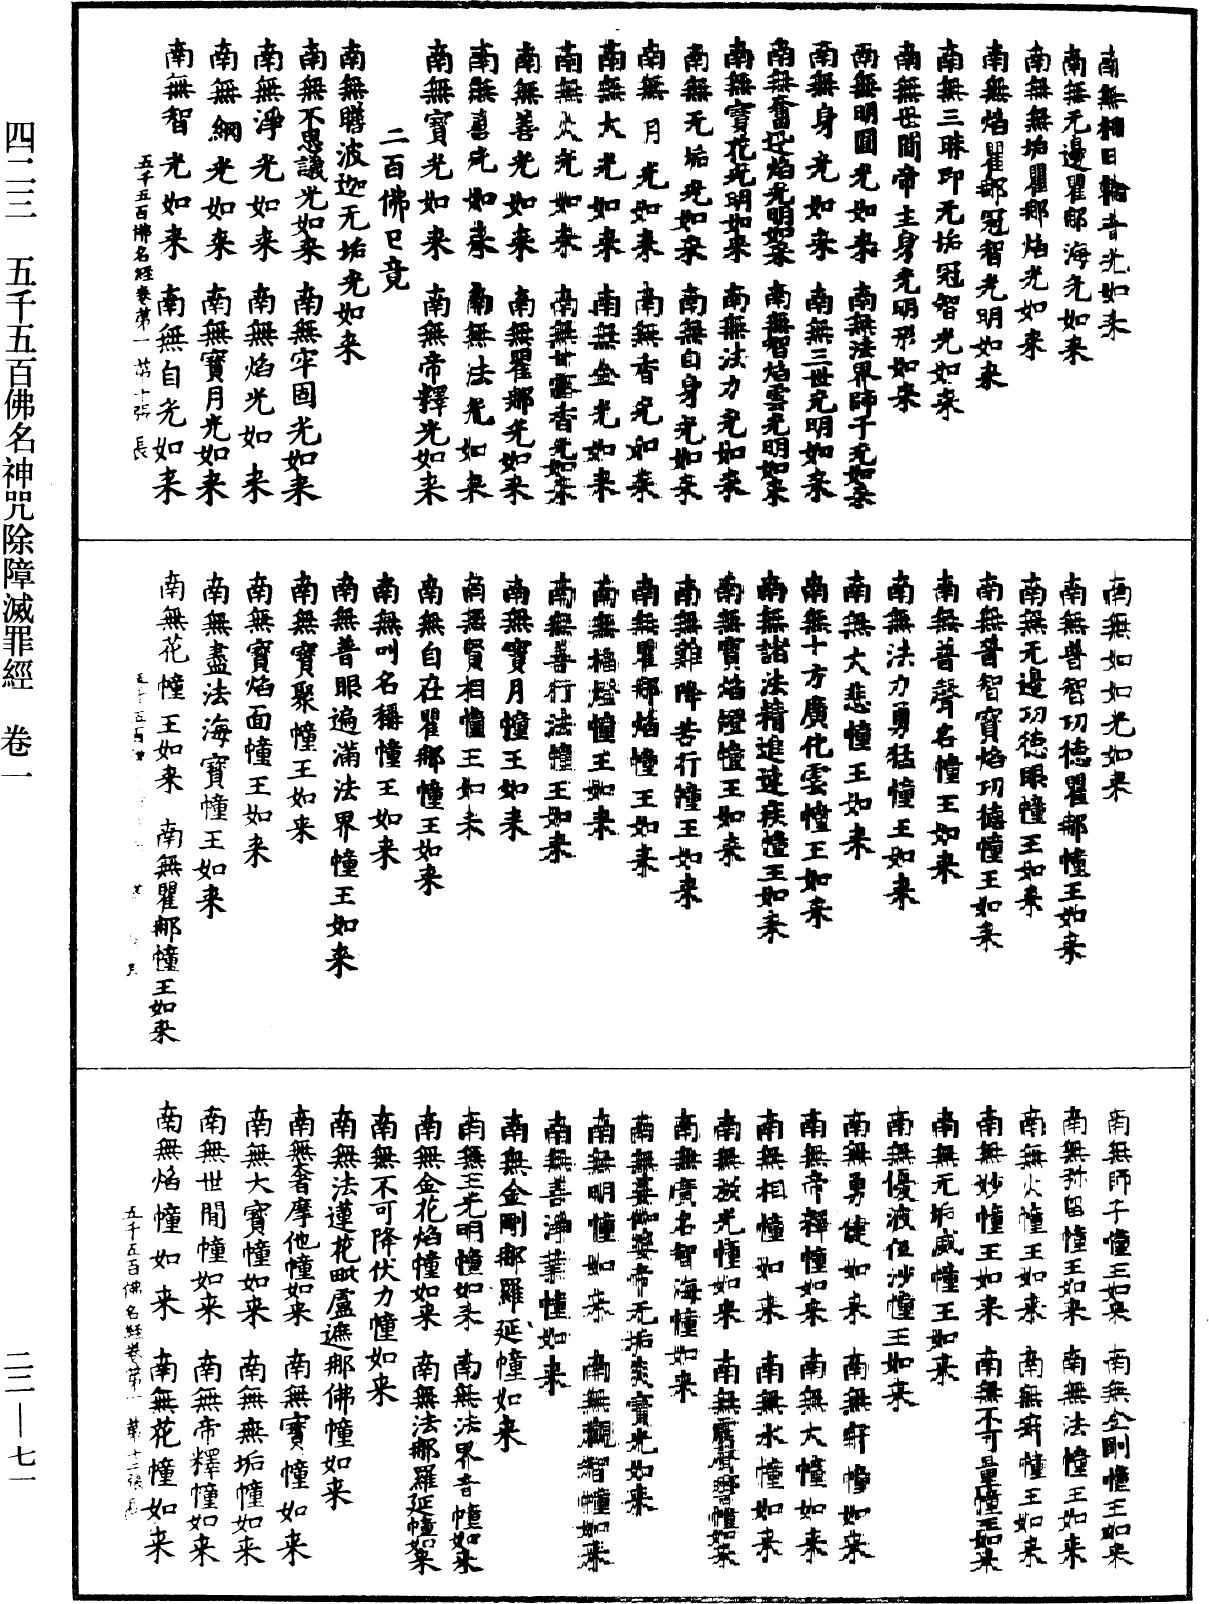 南無相日輪音光如来
南無无邊瞿那海光如来
南無無垢瞿那焰光如来
南無焰瞿那冠智光明如来
南無三昧印无垢冠智光如来
南無世間帝主身光明形如来
南無明圓光如来 南無法界師子光如来
南無身光如来 南無三世光明如来
南無奮迅焰光明如来 南無智焰雲光明如来
南無寶花光明如来 南無法力光如来
南無无垢光如来 南無自身光如来
南無月光如来 南無香光如来
南無大光如来 南無金光如来
南無火光如来 南無甘露香光如来
南無善光如来 南無瞿那光如来
南無喜光如来 南無法光如来
南無寶光如来 南無帝釋光如来
二百佛已竟
南無瞻波迦无垢光如来
南無不思議光如来 南無牢固光如来
南無淨光如来 南無焰光如来
南無網光如来 南無寶月光如来
南無智光如来 南無自光如来
五千五百佛名經卷第一 第十張 長
南無如如光如来
南無普智功德瞿那幢王如来
南無无邊功德眼幢王如来
南無普智寶焰功德幢王如来
南無普聲名幢王如来
南無法力勇猛幢王如来
南無大悲幢王如来
南無十方廣化雲幢王如来
南無諸法精進速疾幢王如来
南無寶焰燈幢王如来
南無難降苦行幢王如来
南無瞿那焰幢王如来
南無福燈幢王如来
南無善行法幢王如来
南無寶月幢王如来
南無賢相幢王如来
南無自在瞿那幢王如来
南無叫名稱幢王如来
南無普眼遍滿法界幢王如来
南無寶聚幢王如来
南無寶焰面幢王如来
南無盡法海寶幢王如来
南無花幢王如来 南無瞿那幢王如来
南無師子幢王如来 南無金剛幢王如来
南無弥留幢王如来 南無法幢王如来
南無火幢王如来 南無幢王如来
南無妙幢王如来 南無不可量幢王如来
南無无垢威幢王如来
南無優波伍沙幢王如来
南無勇健如来 南無幢如来
南無帝釋幢如来 南無大幢如来
南無相幢如来 南無水幢如来
南無放光幢如来 南無震聲響幢如来
南無廣名智海幢如来
南無婆帝无垢寶光如来
南無明幢如来 南無觀智幢如来
南無善淨業幢如来
南無金剛那羅延幢如来
南無王光明幢如来 南無法界音幢如来
南無金花焰幢如来 南無法那羅延幢如来
南無不可降伏力幢如来
南無法蓮花毗盧遮那佛幢如来
南無奢摩他幢如来 南無寶幢如来
南無大寶幢如来 南無無垢幢如来
南無世間幢如来 南無帝釋幢如来
南無焰幢如来 南無花幢如来
五千五百佛名經卷第一 第十二張
四二三 五千五百佛名神咒除障滅罪經 卷一
二二—七一